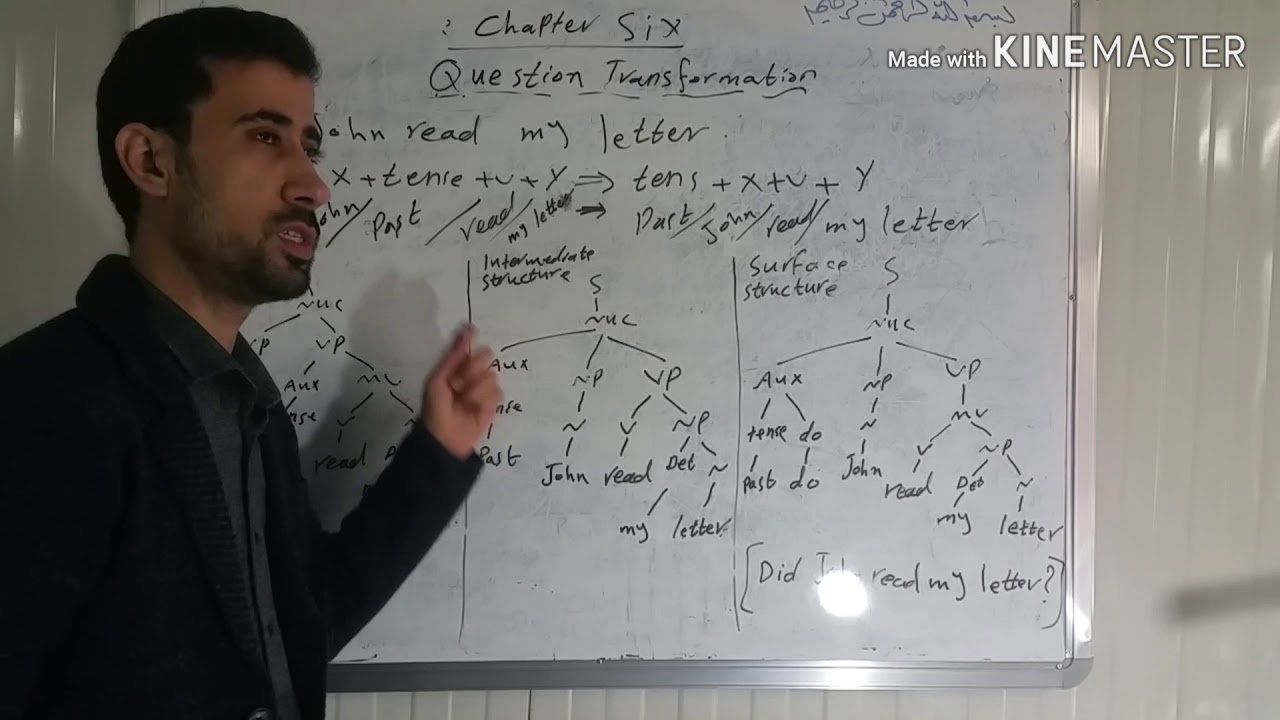 بسم الله الرحمن الرحيم
: Chapter Six
Made with KINEMASTER
Question Transformation
John read my letter.
X + tense + v + Y ⇒ tens + X + v + Y
John / Past / read / my letter ⇒ Past / John / read / my letter
Intermediate structure
S
Nuc
Aux NP VP
N V NP
Past John read Det N
my letter
Surface structure
S
Nuc
Aux NP VP
tense do N MV
Past do John V NP
read Det N
my letter
[Did read my letter?]
Nuc
VP
Aux MV
V
read